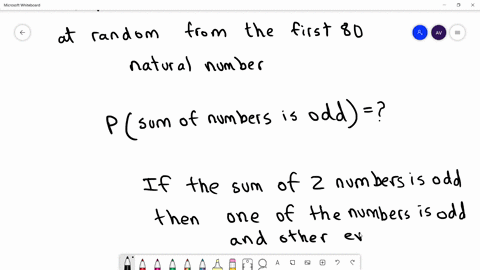 Microsoft Whiteboard
at random from the first 80
natural number
P(sum of numbers is odd)=?
If the sum of 2 numbers is odd
then one of the numbers is odd
and other ev
AV